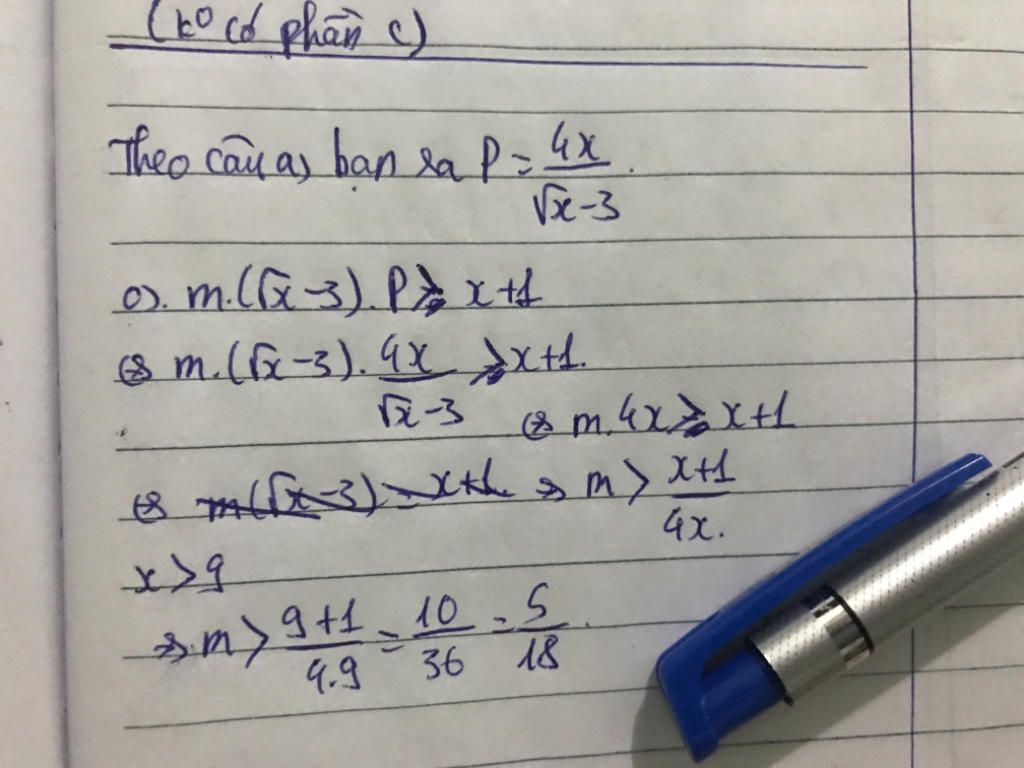 (kº có phần c)
Theo câu a, bạn ra P = 4x / √x - 3.
o). m.(√x - 3). P ⩾ x+1
⇔ m.(√x - 3). 4x / √x - 3 ⩾ x+1.
⇔ m.4x ⩾ x+1
⇔ m(√x - 3) = x+1. ⇒ m > x+1 / 4x.
x > 9
⇒ m > 9+1 / 4.9 = 10 / 36 = 5 / 18.